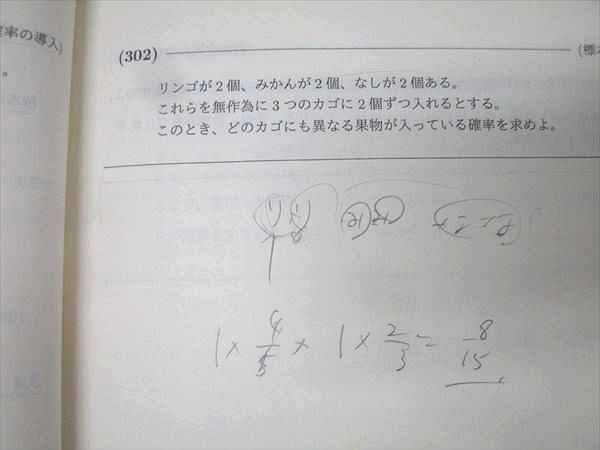 率の導入)
(302)
(標
。
リンゴが2個、みかんが2個、なしが2個ある。
これらを無作為に3つのカゴに2個ずつ入れるとする。
このとき、どのカゴにも異なる果物が入っている確率を求めよ。
1 × 4/5 × 1 × 2/3 = 8/15